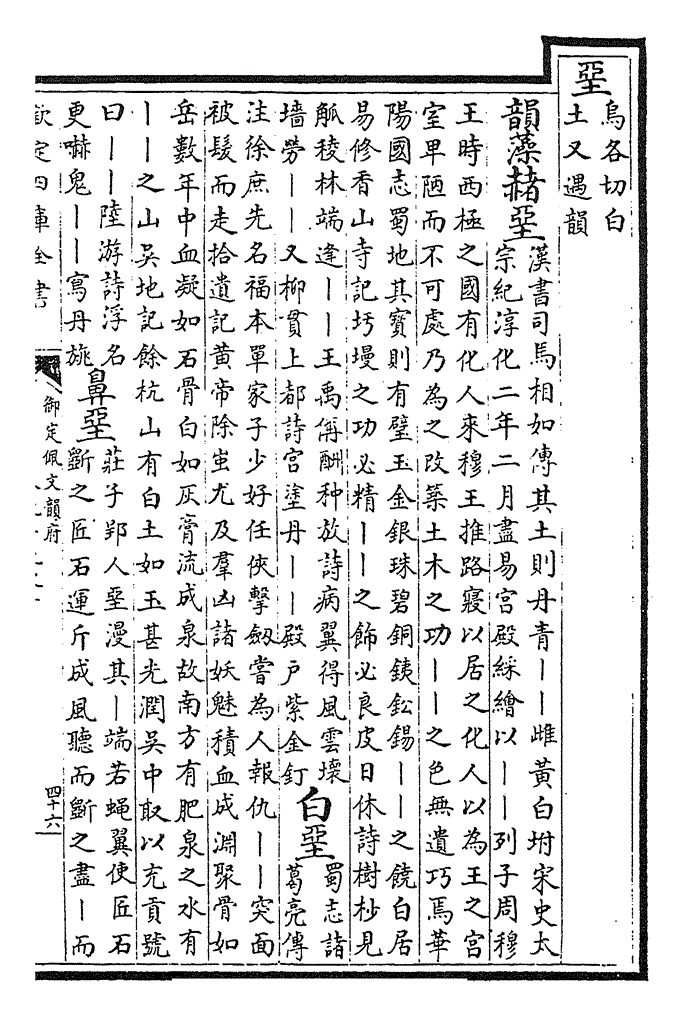 堊
烏各切白
土又遇韻
韻藻赭堊
漢書司馬相如傳其土則丹青丨丨雌黃白坿宋史太
宗紀淳化二年二月盡易宮殿綵繪以丨丨列子周穆
王時西極之國有化人來穆王推路寢以居之化人以為王之宮
室卑陋而不可處乃為之改築土木之功丨丨之色無遺巧焉華
陽國志蜀地其寶則有璧玉金銀珠碧銅鐵鈆錫丨丨之饒白居
易修香山寺記圬墁之功必精丨丨之飾必良皮日休詩樹杪見
觚稜林端逢丨丨王禹偁酬种放詩病翼得風雲壞
墻勞丨丨又柳貫上都詩宮塗丹丨丨殿戶紫金釘
白堊
蜀志諸
葛亮傳
注徐庶先名福本單家子少好任俠擊劒嘗為人報仇丨丨突面
被髮而走拾遺記黃帝除蚩尤及羣凶諸妖魅積血成淵聚骨如
岳數年中血凝如石骨白如灰膏流成泉故南方有肥泉之水有
丨丨之山吳地記餘杭山有白土如玉甚光潤吳中取以充貢號
曰丨丨陸游詩浮名
更嚇鬼丨丨寫丹旐
鼻堊
莊子郢人堊漫其丨端若蝿翼使匠石
斵之匠石運斤成風聽而斵之盡丨而
欽定四庫全書
御定佩文韻府
四十六